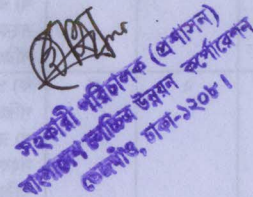 সহকারী পরিচালক (প্রশাসন)
বাংলাদেশ চলচ্চিত্র উন্নয়ন কর্পোরেশন
তেজগাঁও, ঢাকা-১২০৮।